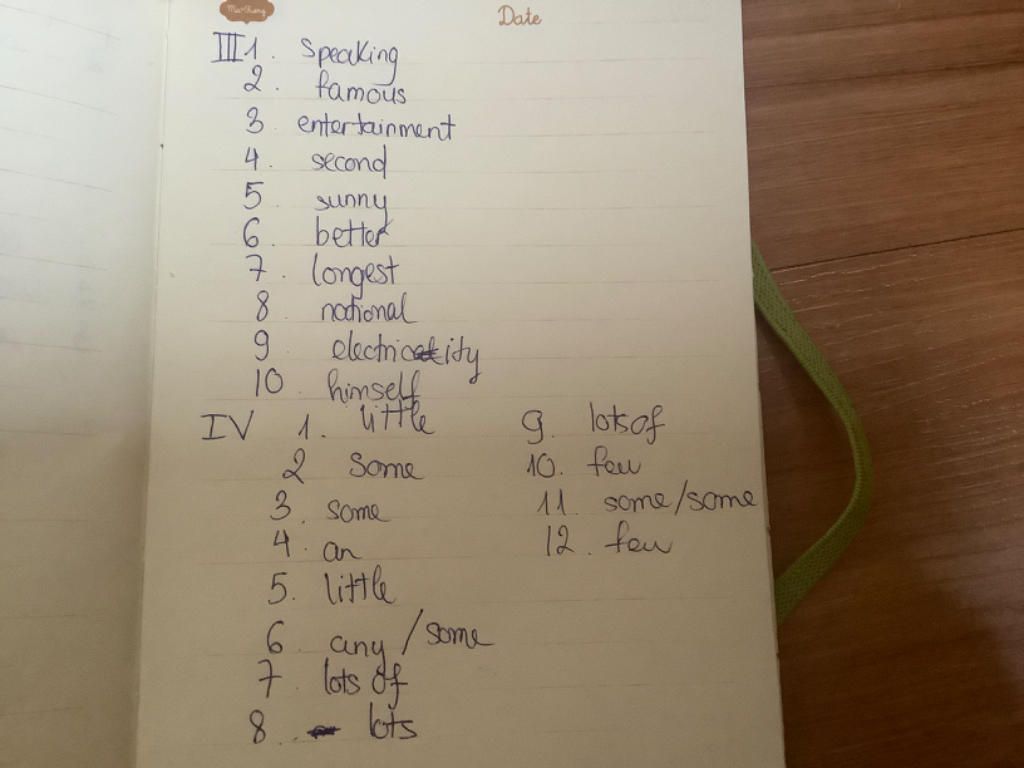 Date
III 1. speaking
2. famous
3 entertainment
4. second
5 sunny
6. better
7. longest
8 national
9. electricity
10. himself
IV 1. little
2 some
3. some
4. an
5. little
6 any / some
7. lots of
8. lots
9. lots of
10. few
11. some/some
12. few